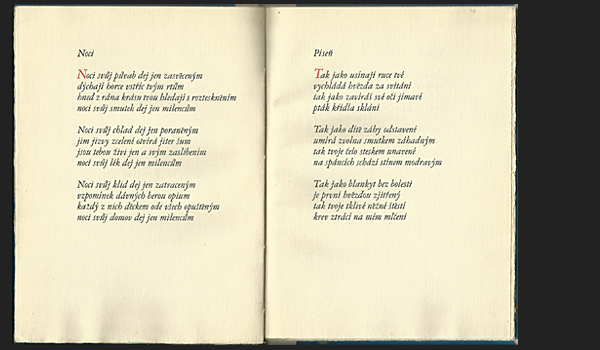 Noci
Noci svůj půvab dej jen zasvěceným
dýchají horce vstříc tvým rtům
hned z rána krásu tvou hledají s rozteskněním
noci svůj smutek dej jen milencům
Noci svůj chlad dej jen poraněným
jim jizvy zcelené otvírá jiter šum
jsou tebou živi jen a svým zaslíbením
noci svůj lék dej jen milencům
Noci svůj klid dej jen zatraceným
vzpomínek dávných berou opium
každý z nich dítkem ode všech opuštěným
noci svůj domov dej jen milencům
Píseň
Tak jako usínají ruce tvé
vychládá hvězda za svítání
tak jako zavíráš své oči jímavé
pták křídla sklání
Tak jako dítě záhy odstavené
umírá zvolna smutkem záhadným
tak tvoje čelo steskem unavené
na spáncích schází stínem modravým
Tak jako blankyt bez bolesti
je první hvězdou zjitřený
tak tvoje tklivé něžné štěstí
krev ztrácí na mém mlčení